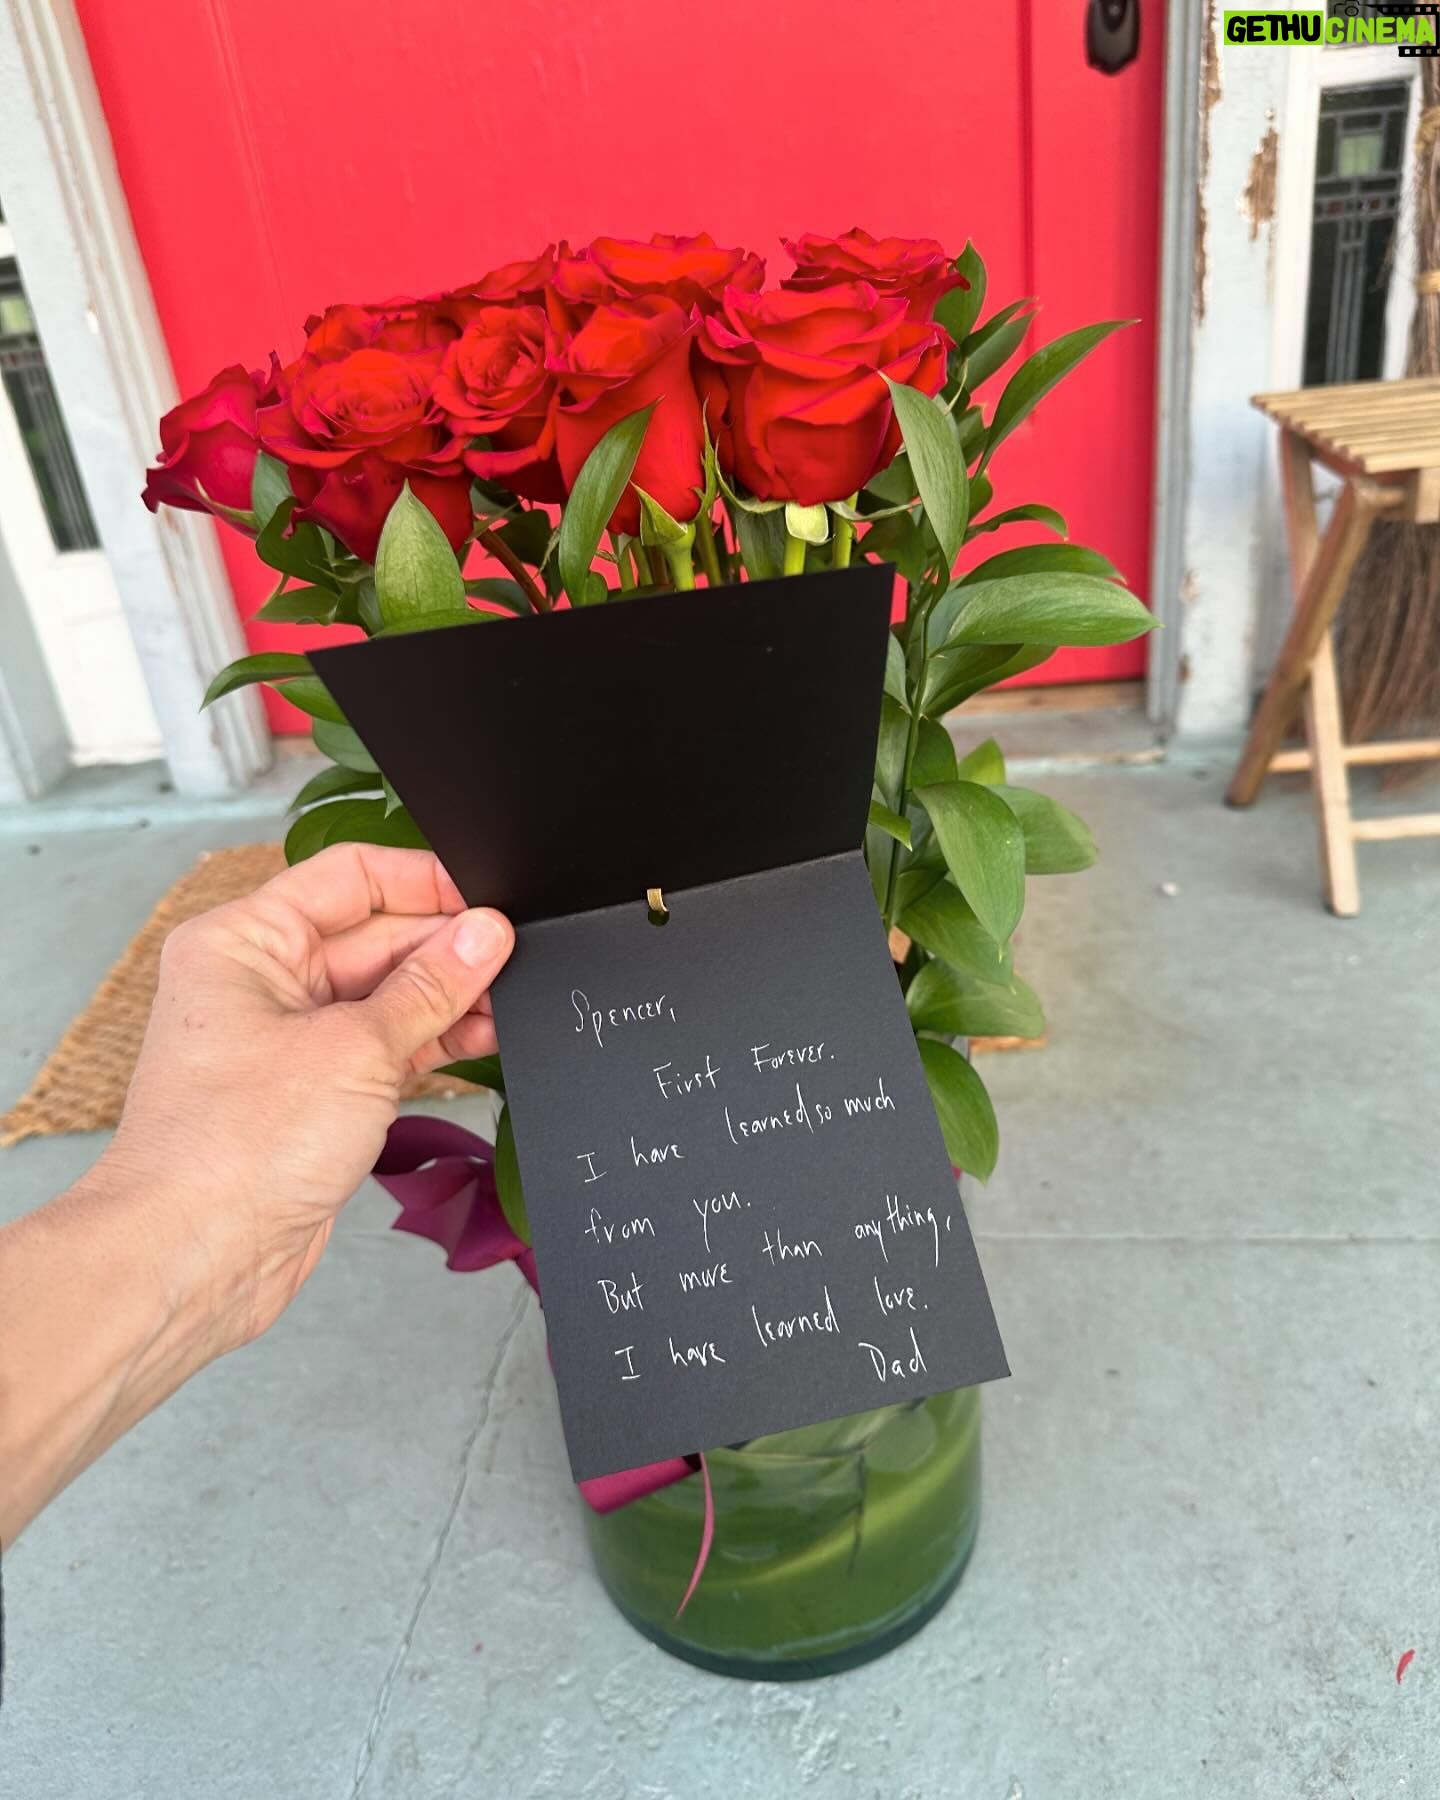 GETHUCINEMA
Spencer,
First Forever.
I have learned so much
from you.
But more than anything,
I have learned love.
Dad